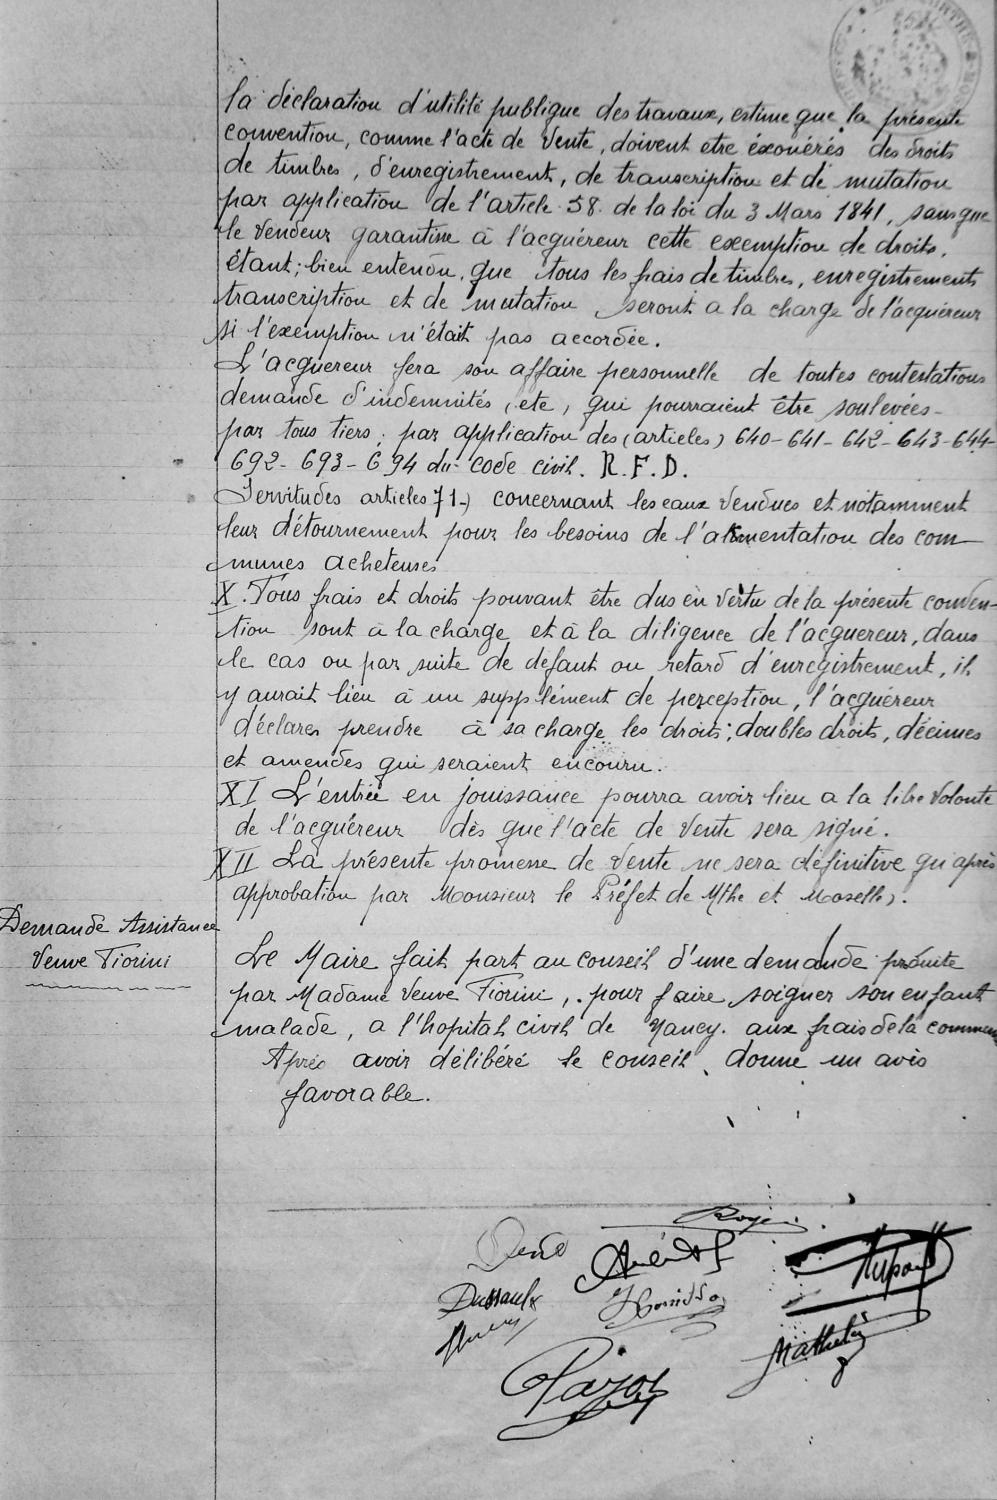 la déclaration d'utilité publique des travaux, estime que la présente
convention, comme l'acte de Vente, doivent etre éxonérés des droits
de timbres, d'enregistrement, de transcription et de mutation
par application de l'article 58 de la loi du 3 Mars 1841, sans que
le Vendeur garantisse à l'acquéreur cette exemption de droits,
étant; bien entendu, que tous les frais de timbres, enregistrements
transcription et de mutation seront a la charge de l'acquéreur
si l'exemption n'était pas accordée.
L'acquereur fera son affaire personnelle de toutes contestations
demande d'indemnités, etc, qui pourraient être soulevées-
par tous tiers, par application des (articles) 640-641-642-643-644-
692-693-694 du code civil. R.F.D.
Servitudes articles 71-) concernant les eaux Vendues et notamment
leur détournement pour les besoins de l'alimentation des com-
munes acheteuses
X. Tous frais et droits pouvant être dus en vertu de la présente conven-
tion sont à la charge et à la diligence de l'acquereur, dans
le cas ou par suite de défaut ou retard d'enregistrement, il
y aurait lieu à un supplément de perception, l'acquéreur
déclare prendre à sa charge les droits; doubles droits, décimes
et amendes qui seraient encouru.
XI L'entrée en jouissance pourra avoir lieu a la libre Volonte
de l'acquéreur dès que l'acte de Vente sera signé.
XII La présente promesse de Vente ne sera définitive qu'après
approbation par Monsieur le Préfet de Mthe et Moselle.
Demande Assistance
Veuve Fiorini
Le Maire fait part au conseil d'une demande produite
par Madame Veuve Fiorini, pour faire soigner son enfant
malade, a l'hopital civil de Nancy. aux frais de la commune
Après avoir délibéré le conseil, donne un avis
favorable.
Dussaulx
Dupont
Mathelin
Pajot